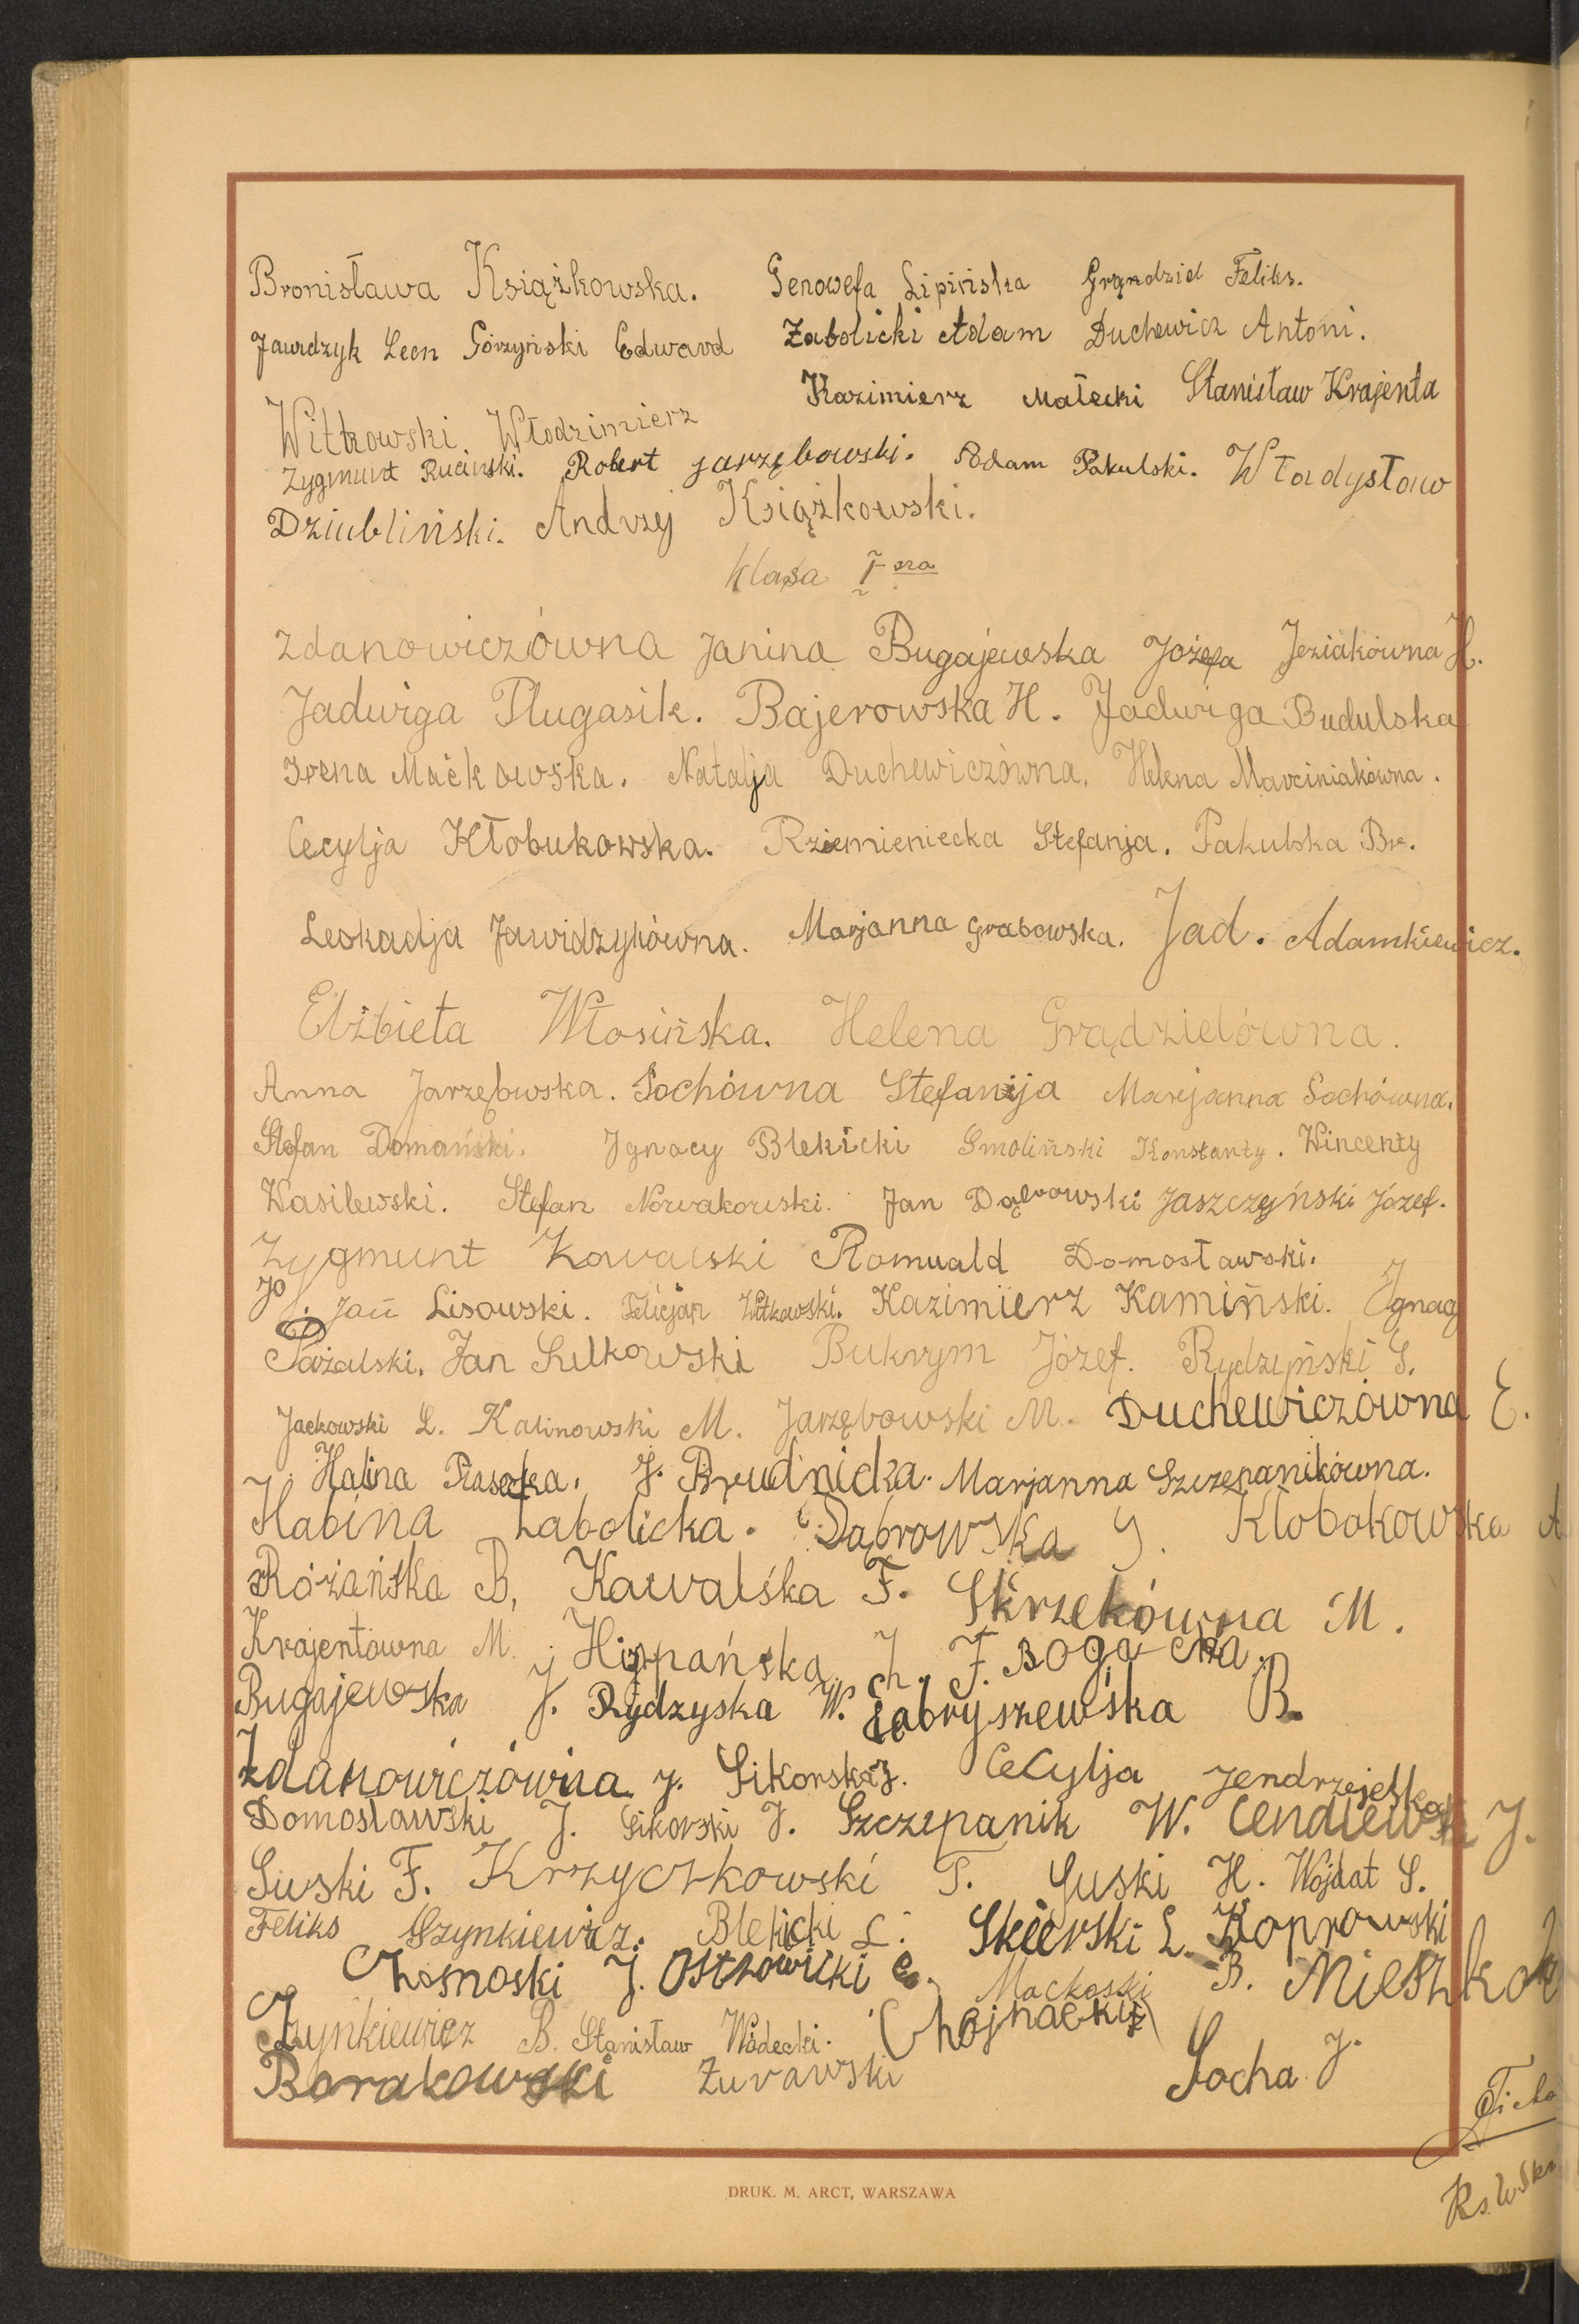 Bronisława Książkowska. Genowefa Lipińska Grądziel Feliks.
Jawidzyk Leon Górzyński Edward Zabolicki Adam Duchewicz Antoni.
Kazimierz Małecki Stanisław Krajenta
Witkowski Włodzimierz
Zygmunt Ruciński. Robert Jarzębowski. Adam Pakulski. Władysław
Dziubliński. Andrzej Książkowski.
klasa I-sza
Zdanowiczówna Janina Bugajewska Józefa Jeziakówna H.
Jadwiga Pługasik. Bajerowska H. Jadwiga Budulska
Irena Maćkowska. Natalja Duchewiczówna. Helena Marciniakówna.
Cecylja Kłobukowska. Rziemieniecka Stefanja. Pakulska Br.
Leokadja Jawidzykówna. Marjanna Grabowska. Jad. Adamkiewicz.
Elżbieta Włosińska. Helena Grądzielówna.
Anna Jarzębwska. Sochówna Stefanija Marjanna Sochówna.
Stefan Domański. Ignacy Blekicki Smoliński Konstanty. Wincenty
Wasilewski. Stefan Nowakowski. Jan Dąbrowski Jaszczyński Józef.
Zygmunt Kowalski Romuald Domosławski.
Jan Lisowski. Felicjan Witkowski. Kazimierz Kamiński. Ignacy
Pażalski. Jan Sulkowski Bukrym Józef. Rydzyński S.
Jackowski L. Kalinowski M. Jarzębowski M. Duchewiczówna E.
Halina Piasecka. J. Brudnicka. Marjanna Szczepanikówna.
Habina Zabolicka. Dąbrowska J. Kłobokowska A
Różańska B, Kawalska F. Skrzekówna M.
Krajentówna M. Hiszpańska J. Ch. F. Bogacka.
Bugajewska J. Rydzyska W. Zabryszewska B.
Zdanowiczówna J. Sikorska J. Cecylja Jendrzejeska
Domosławski J. Sikorski J. Szczepanik W. Cendlewski J.
Suski F. Krzyczkowski T. Suski H. Wojdat S.
Feliks Szynkiewicz. Blekicki L. Skierski L. Koprowski
Chosnoski J. Ostrowicki C. Mackoski B. Mieszkok
Szynkiewicz B. Stanisław Wódecki. Chojnacki
Borakowski Żurawski Socha J.
DRUK. M. ARCT, WARSZAWA